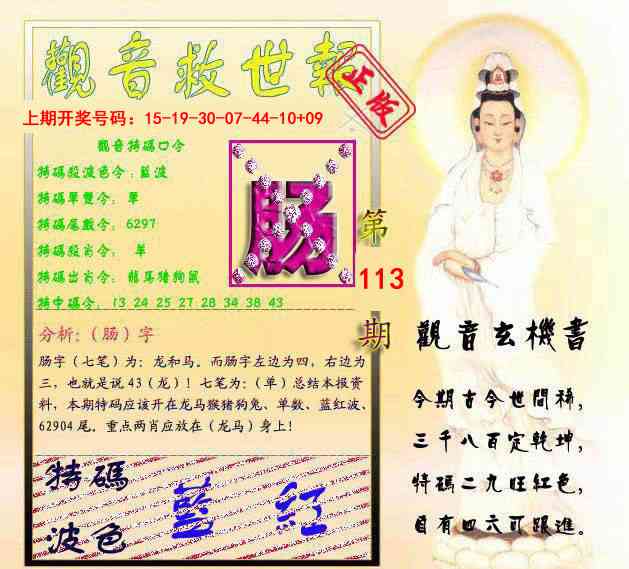 觀音救世報
正版
上期开奖号码：15-19-30-07-44-10+09
觀音特碼口令
特碼殺波色令：藍波
特碼單雙令： 單
特碼尾數令： 6297
特碼殺肖令： 單
特碼出肖令： 龍馬猪狗鼠
特中碼令： 13 24 25 27 28 34 38 43
肠
第
113
期
分析：（肠）字
肠字（七笔）为：龙和马。而肠字左边为四，右边为
三，也就是说 43（龙）！七笔为：（单）总结本报资
料，本期特码应该开在龙马猴猪狗兔、单数、蓝红波、
62904 尾。重点两肖应放在（龙马）身上！
特碼
波色
藍 紅
觀音玄機書
今期古今世間稀，
三千八百定乾坤，
特碼二九旺紅色，
自有四六可跟進。